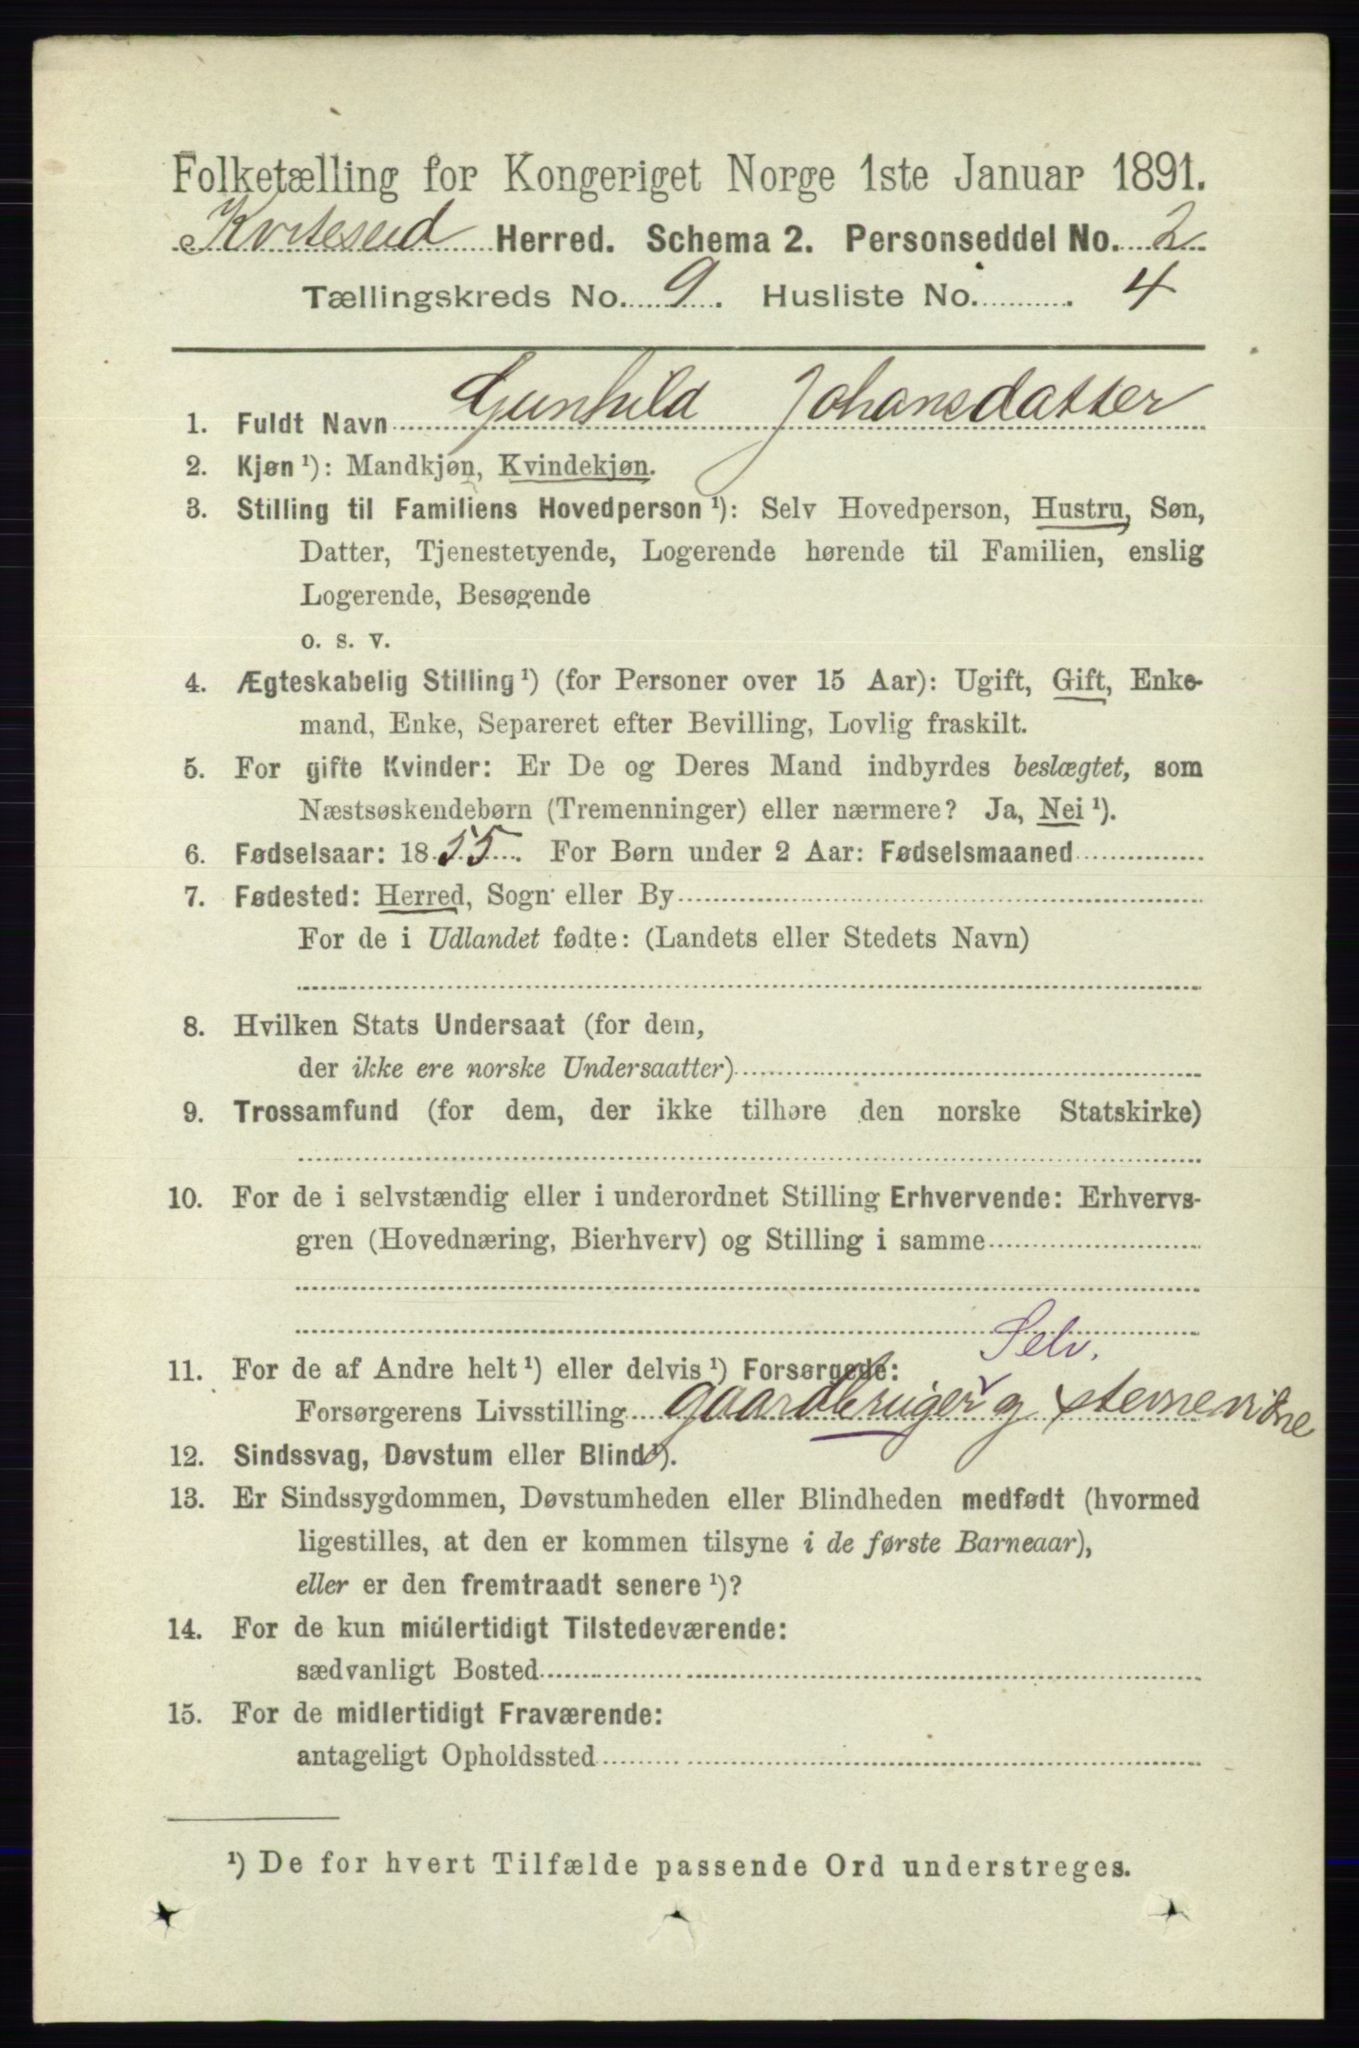 Folketælling for Kongeriget Norge 1ste Januar 1891.
Kviteseid Herred. Schema 2. Personseddel No. 2
Tællingskreds No. 9. Husliste No. 4
1. Fuldt Navn Gunhild Johansdatter
2. Kjøn ¹): Mandkjøn, Kvindekjøn.
3. Stilling til Familiens Hovedperson ¹): Selv Hovedperson, Hustru, Søn,
Datter, Tjenestetyende, Logerende hørende til Familien, enslig
Logerende, Besøgende
o. s. v.
4. Ægteskabelig Stilling ¹) (for Personer over 15 Aar): Ugift, Gift, Enke-
mand, Enke, Separeret efter Bevilling, Lovlig fraskilt.
5. For gifte Kvinder: Er De og Deres Mand indbyrdes beslægtet, som
Næstsøskendebørn (Tremenninger) eller nærmere? Ja, Nei ¹).
6. Fødselsaar: 1855. For Børn under 2 Aar: Fødselsmaaned
7. Fødested: Herred, Sogn eller By
For de i Udlandet fødte: (Landets eller Stedets Navn)
8. Hvilken Stats Undersaat (for dem,
der ikke ere norske Undersaatter)
9. Trossamfund (for dem, der ikke tilhøre den norske Statskirke)
10. For de i selvstændig eller i underordnet Stilling Erhvervende: Erhvervs-
gren (Hovednæring, Bierhverv) og Stilling i samme
Selv.
11. For de af Andre helt ¹) eller delvis ¹) Forsørgede:
Forsørgerens Livsstilling gaardbruger og stevnevidne
12. Sindssvag, Døvstum eller Blind ¹).
13. Er Sindssygdommen, Døvstumheden eller Blindheden medfødt (hvormed
ligestilles, at den er kommen tilsyne i de første Barneaar),
eller er den fremtraadt senere ¹)?
14. For de kun midlertidigt Tilstedeværende:
sædvanligt Bosted
15. For de midlertidigt Fraværende:
antageligt Opholdssted
¹) De for hvert Tilfælde passende Ord understreges.